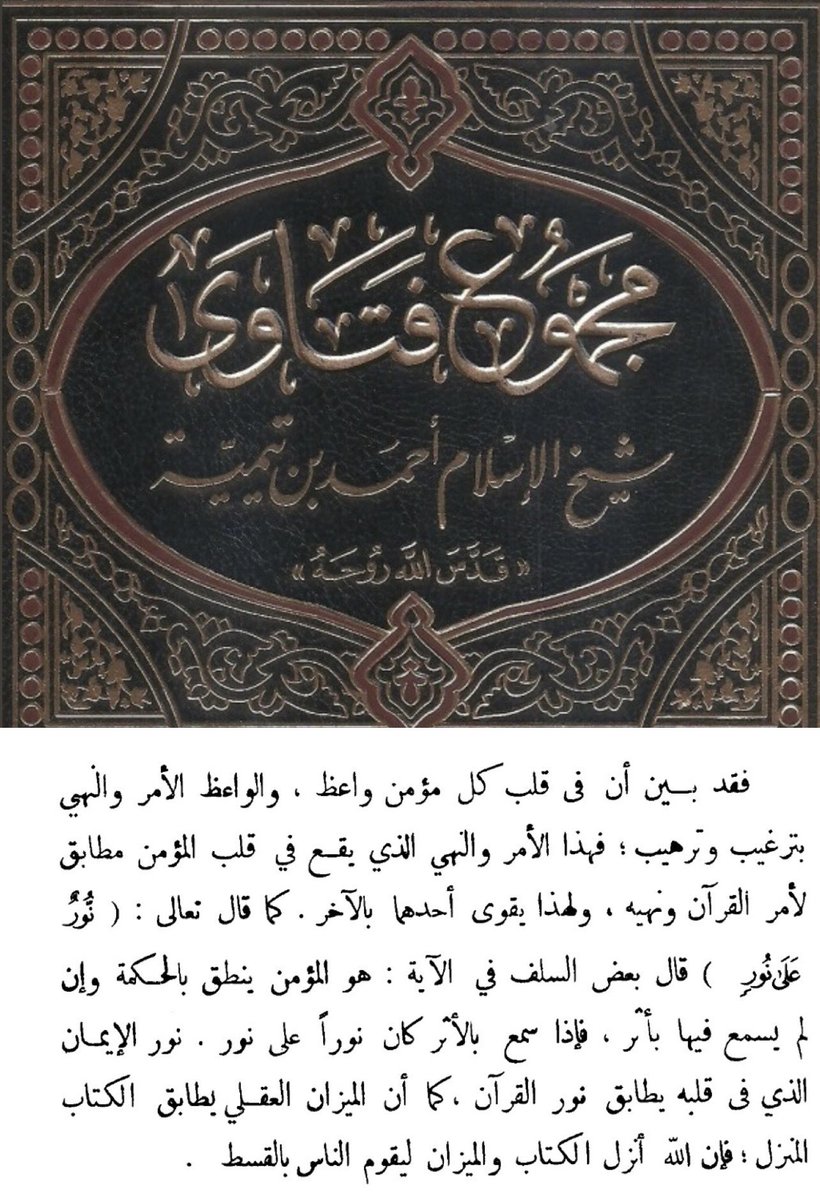 مجموع فتاوى
شيخ الإسلام أحمد بن تيمية
«قَدَّسَ اللَّه رُوحَهُ»
فقد بــين أن فى قلب كل مؤمن واعظ ، والواعظ الأمر والنهي
بترغيب وترهيب ؛ فهذا الأمر والنهي الذي يقــع في قلب المؤمن مطابق
لأمر القرآن ونهيه ، ولهذا يقوى أحدهما بالآخر . كما قال تعالى : ( نُّورٌ
عَلَىٰ نُورٍ ) قال بعض السلف في الآية : هو المؤمن ينطق بالحكمة وإن
لم يسمع فيها بأثر ، فإذا سمع بالأثر كان نوراً على نور . نور الإيمــان
الذي فى قلبه يطابق نور القرآن ، كما أن الميزان العقــلي يطابق الكتاب
المنزل ؛ فإن الله أنزل الكتاب والميزان ليقوم الناس بالقسط .